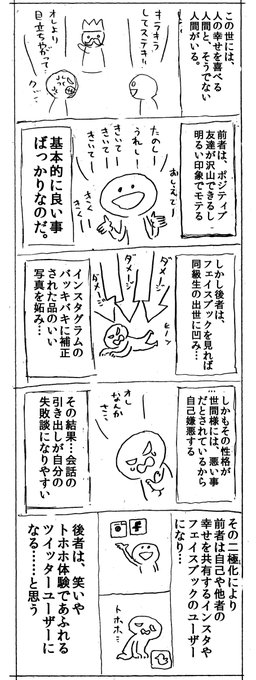 この世には、
人の幸せを喜べる
人間と、そうでない
人間がいる。
キラキラ
してステキ!!
オレより
目立ちやがって…
クソ…
前者は、ポジティブ
友達が沢山できるし
明るい印象でモテる
おしえてー
たのしー
うれしー
きいてー
きいてー
きくー
きくー
基本的に良い事
ばっかりなのだ。
しかし後者は、
フェイスブックを見れば
同級生の出世に凹み…
ダメージ
ダメージ
ダメージ
インスタグラムの
バッキバキに補正
された品のいい
写真を妬み…
しかもその性格が
世間様には、悪い事
だとされているから
自己嫌悪する
オレ
なんか
さ…
その結果…会話の
引き出しが自分の
失敗談になりやすい
その二極化により
前者は自己や他者の
幸せを共有するインスタや
フェイスブックのユーザー
になり…
トホホ…
後者は、笑いや
トホホ体験であふれる
ツイッターユーザーに
なる……と思う